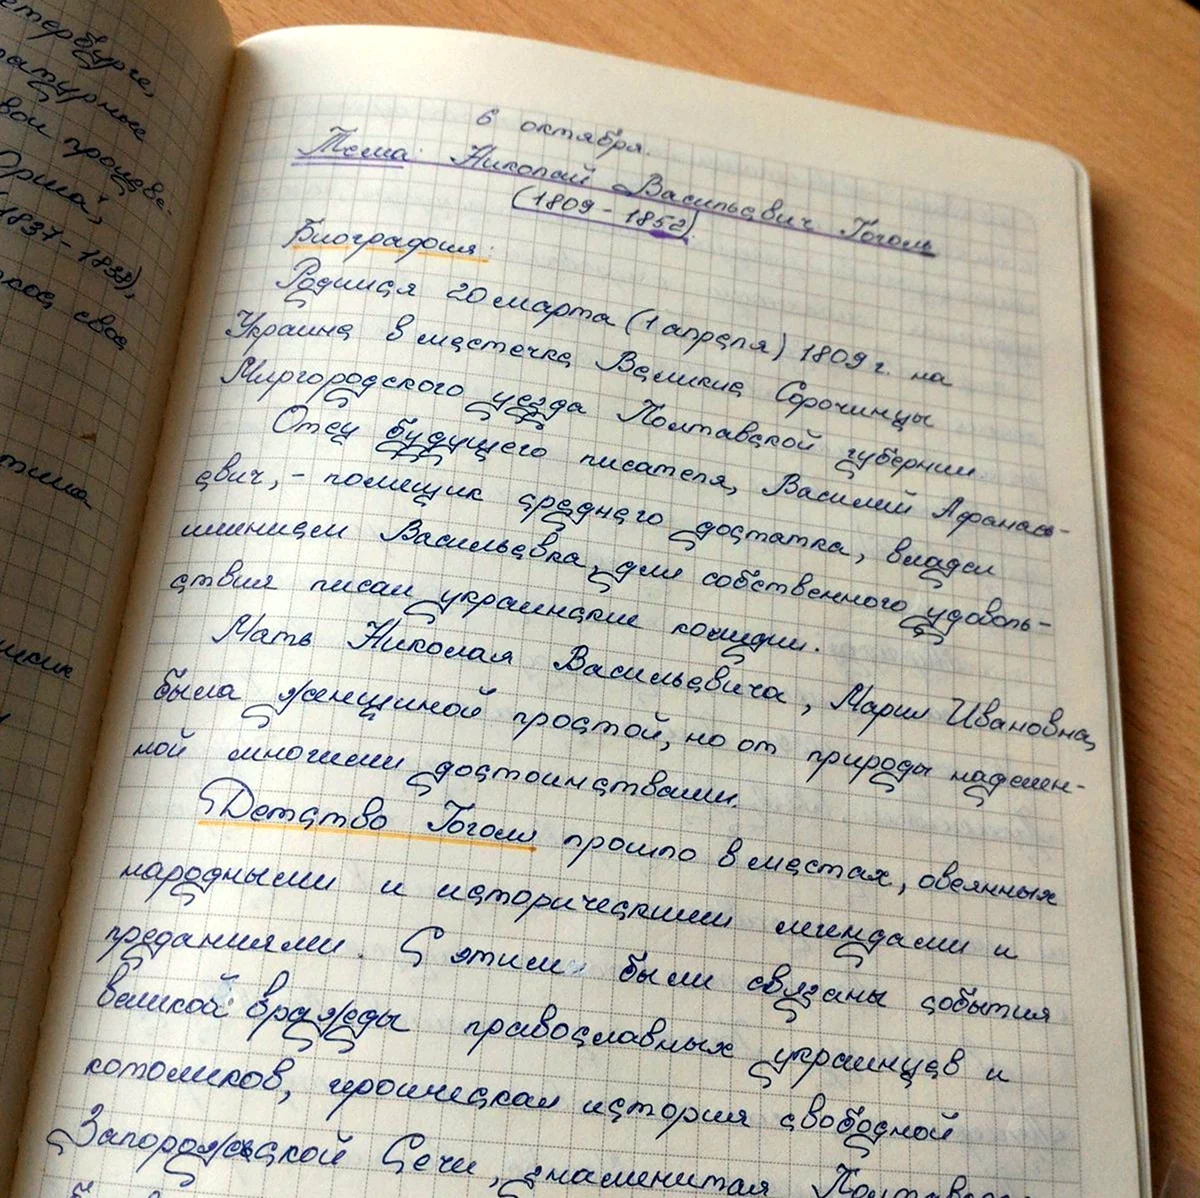 етербурге,
ратурные
вои произве-
1837-1838),
6 октября.
Тема: Николай Васильевич Гоголь
(1809-1852).
Биография:
Родился 20 марта (1 апреля) 1809 г. на
Украине в местечке Великие Сорочинцы
Миргородского уезда Полтавской губернии.
Отец будущего писателя, Василий Афанась-
евич, - помещик среднего достатка, владел
имением Васильевка, для собственного удоволь-
ствия писал украинские комедии.
Мать Николая Васильевича, Мария Ивановна,
была женщиной простой, но от природы наделен-
ной многими достоинствами.
Детство Гоголя прошло в местах, овеянных
народными и историческими легендами и
преданиями. С этим были связаны события
великой вражды православных украинцев и
католиков, героическая история свободной
Запорожской Сечи, знаменитая